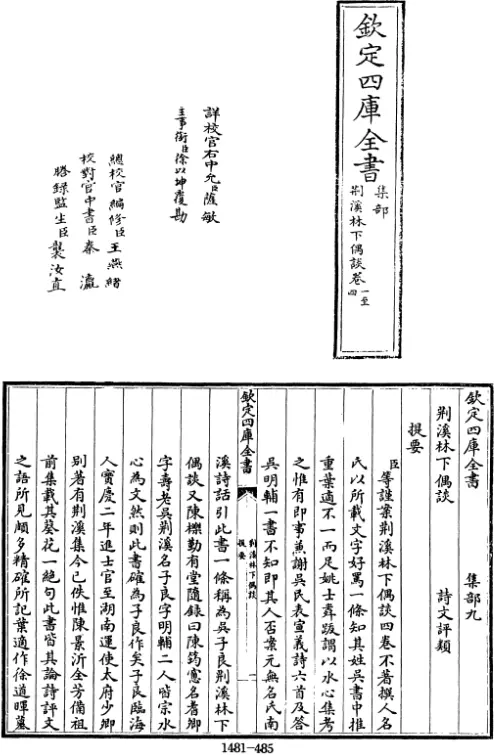 欽定四庫全書
集部
荆溪林下偶談卷一至四
詳校官右中允臣薩敏
主事銜臣徐以坤覆勘
總校官編修臣王燕緒
校對官中書臣秦瀛
謄録監生臣裴汝直
欽定四庫全書 集部九
荆溪林下偶談 詩文評類
提要
臣等謹案荆溪林下偶談四卷不著撰人名
氏以所載文字好罵一條知其姓吳書中推
重葉適不一而足姚士粦跋謂以水心集考
之惟有即事兼謝吳民表宣義詩六首及答
吳明輔一書不知即其人否案元無名氏南
欽定四庫全書 荆溪林下偶談 提要 一
溪詩話引此書一條稱為吳子良荆溪林下
偶談又陳櫟勤有堂隨錄曰陳筠窻名耆卿
字壽老吳荆溪名子良字明輔二人皆宗水
心為文然則此書確為子良作矣子良臨海
人寳慶二年進士官至湖南運使太府少卿
别著有荆溪集今已佚惟陳景沂全芳備祖
前集載其葵花一絶句此書皆其論詩評文
之語所見頗多精確所記葉適作徐道暉墓
1481-485